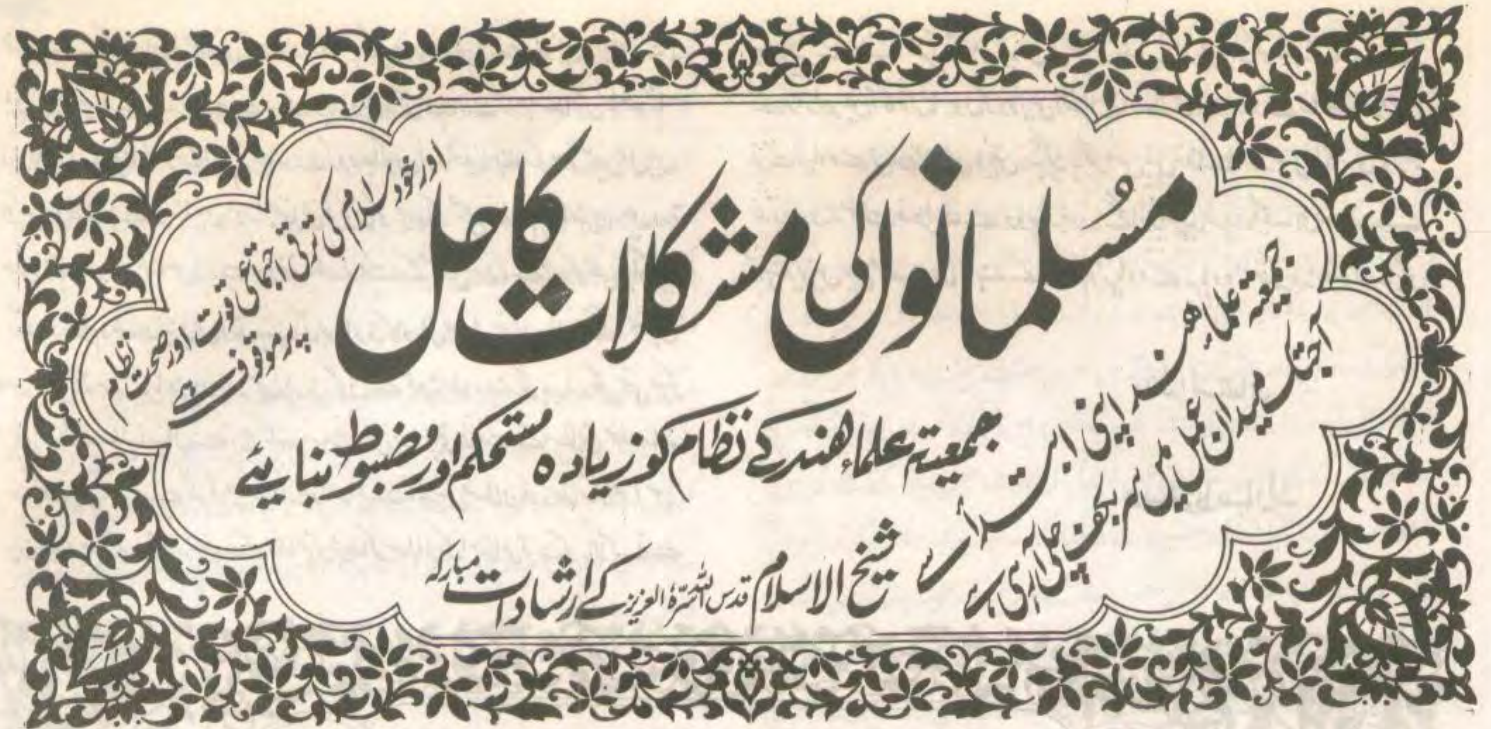 مسلمانوں کی مشکلات کا حل
اور خود اسلام کی ترقی اجتماعی قوت اور صحت نظام
پر موقوف ہے
جمعیۃ علماء ھند اپنی ابتداء سے
آجتک میدان عمل میں گام بھن چلی آرہی ہے
جمعیۃ علماء ھند کے نظام کو زیادہ مستحکم اور مضبوط بنایئے
شیخ الاسلام قدس اللہ سرہ العزیز کے ارشادات مبارکہ